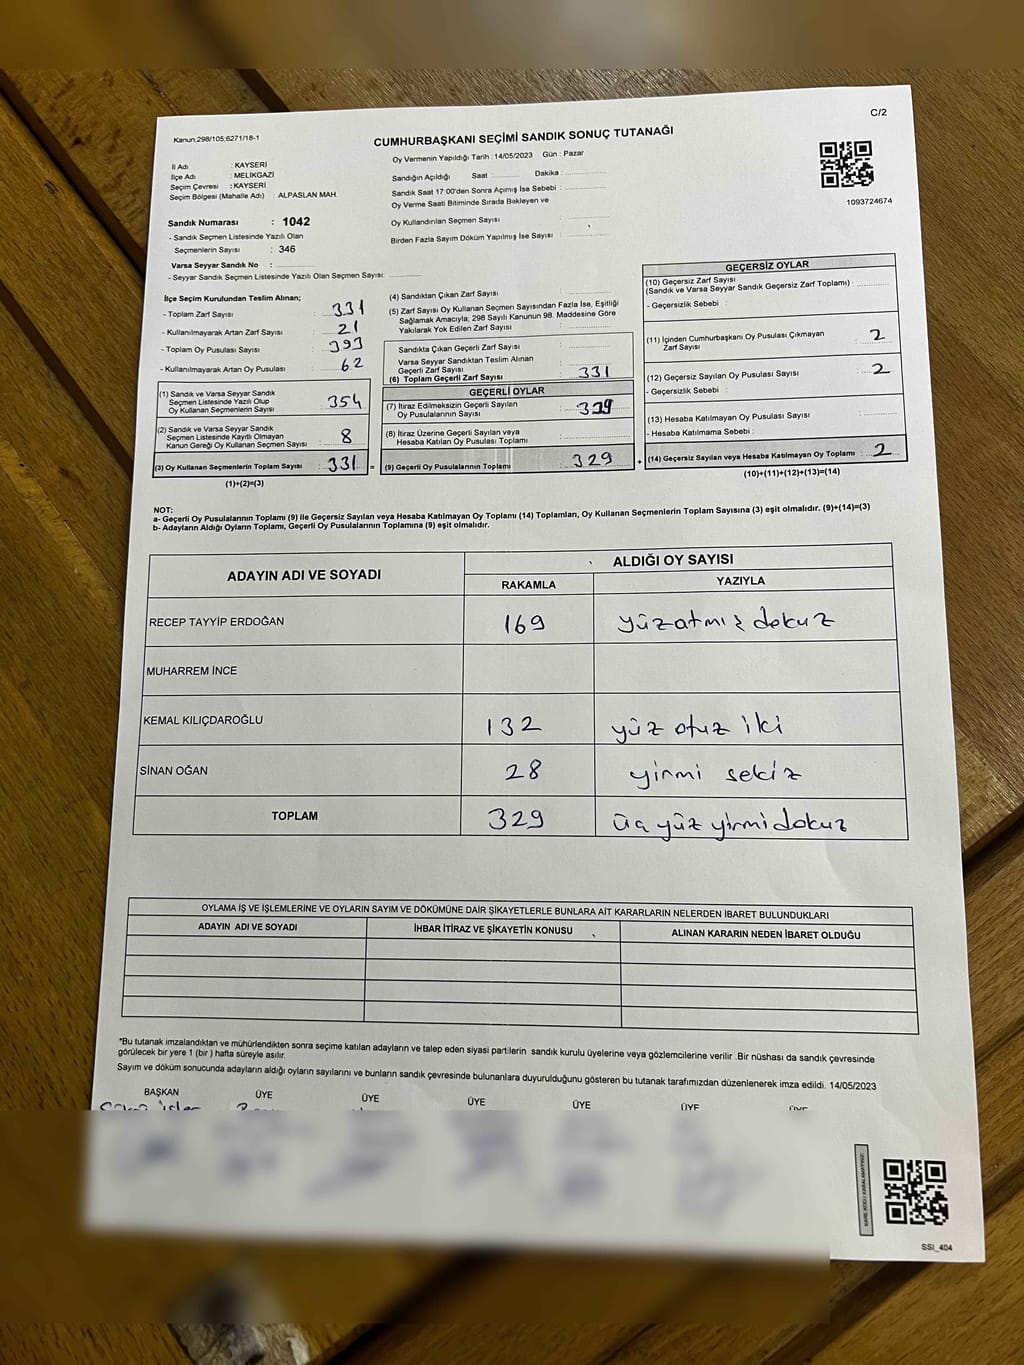 C/2
Kanun:298/105;6271/18-1
CUMHURBAŞKANI SEÇİMİ SANDIK SONUÇ TUTANAĞI
İl Adı : KAYSERİ
İlçe Adı : MELİKGAZİ
Seçim Çevresi : KAYSERİ
Seçim Bölgesi (Mahalle Adı) : ALPASLAN MAH.
Oy Vermenin Yapıldığı Tarih : 14/05/2023 Gün : Pazar
Sandığın Açıldığı Saat : Dakika :
Sandık Saat 17:00'den Sonra Açımış İse Sebebi :
Oy Verme Saati Bitiminde Sırada Bekleyen ve
Oy Kullandırılan Seçmen Sayısı :
Birden Fazla Sayım Döküm Yapılmış İse Sayısı :
1093724674
Sandık Numarası : 1042
- Sandık Seçmen Listesinde Yazılı Olan
Seçmenlerin Sayısı : 346
Varsa Seyyar Sandık No :
- Seyyar Sandık Seçmen Listesinde Yazılı Olan Seçmen Sayısı:
İlçe Seçim Kurulundan Teslim Alınan;
- Toplam Zarf Sayısı : 331
- Kullanılmayarak Artan Zarf Sayısı : 21
- Toplam Oy Pusulası Sayısı : 393
- Kullanılmayarak Artan Oy Pusulası : 62
(1) Sandık ve Varsa Seyyar Sandık
Seçmen Listesinde Yazılı Olup
Oy Kullanan Seçmenlerin Sayısı : 354
(2) Sandık ve Varsa Seyyar Sandık
Seçmen Listesinde Kayıtlı Olmayan
Kanun Gereği Oy Kullanan Seçmen Sayısı : 8
(3) Oy Kullanan Seçmenlerin Toplam Sayısı : 331 =
(1)+(2)=(3)
(4) Sandıktan Çıkan Zarf Sayısı :
(5) Zarf Sayısı Oy Kullanan Seçmen Sayısından Fazla İse, Eşitliği
Sağlamak Amacıyla, 298 Sayılı Kanunun 98. Maddesine Göre
Yakılarak Yok Edilen Zarf Sayısı :
Sandıkta Çıkan Geçerli Zarf Sayısı :
Varsa Seyyar Sandıktan Teslim Alınan
Geçerli Zarf Sayısı :
(6) Toplam Geçerli Zarf Sayısı : 331
GEÇERLİ OYLAR
(7) İtiraz Edilmeksizin Geçerli Sayılan
Oy Pusulalarının Sayısı : 329
(8) İtiraz Üzerine Geçerli Sayılan veya
Hesaba Katılan Oy Pusulası Toplamı :
(9) Geçerli Oy Pusulalarının Toplamı : 329 +
GEÇERSİZ OYLAR
(10) Geçersiz Zarf Sayısı
(Sandık ve Varsa Seyyar Sandık Geçersiz Zarf Toplamı) :
- Geçersizlik Sebebi :
(11) İçinden Cumhurbaşkanı Oy Pusulası Çıkmayan
Zarf Sayısı : 2
(12) Geçersiz Sayılan Oy Pusulası Sayısı : 2
- Geçersizlik Sebebi :
(13) Hesaba Katılmayan Oy Pusulası Sayısı :
- Hesaba Katılmama Sebebi :
(14) Geçersiz Sayılan veya Hesaba Katılmayan Oy Toplamı : 2
(10)+(11)+(12)+(13)=(14)
NOT:
a- Geçerli Oy Pusulalarının Toplamı (9) ile Geçersiz Sayılan veya Hesaba Katılmayan Oy Toplamı (14) Toplamları, Oy Kullanan Seçmenlerin Toplam Sayısına (3) eşit olmalıdır. (9)+(14)=(3)
b- Adayların Aldığı Oyların Toplamı, Geçerli Oy Pusulalarının Toplamına (9) eşit olmalıdır.
ADAYIN ADI VE SOYADI
ALDIĞI OY SAYISI
RAKAMLA YAZIYLA
RECEP TAYYİP ERDOĞAN 169 yüzatmız dokuz
MUHARREM İNCE
KEMAL KILIÇDAROĞLU 132 yüz otuz iki
SİNAN OĞAN 28 yirmi sekiz
TOPLAM 329 üç yüz yirmi dokuz
OYLAMA İŞ VE İŞLEMLERİNE VE OYLARIN SAYIM VE DÖKÜMÜNE DAİR ŞİKAYETLERLE BUNLARA AİT KARARLARIN NELERDEN İBARET BULUNDUKLARI
ADAYIN ADI VE SOYADI İHBAR İTİRAZ VE ŞİKAYETİN KONUSU ALINAN KARARIN NEDEN İBARET OLDUĞU
*Bu tutanak imzalandıktan ve mühürlendikten sonra seçime katılan adayların ve talep eden siyasi partilerin sandık kurulu üyelerine veya gözlemcilerine verilir .Bir nüshası da sandık çevresinde
görülecek bir yere 1 (bir ) hafta süreyle asılır.
Sayım ve döküm sonucunda adayların aldığı oyların sayılarını ve bunların sandık çevresinde bulunanlara duyurulduğunu gösteren bu tutanak tarafımızdan düzenlenerek imza edildi. 14/05/2023
BAŞKAN ÜYE ÜYE ÜYE ÜYE ÜYE ÜYE
KARE KODU KARALAMAYINIZ!
SSI_404